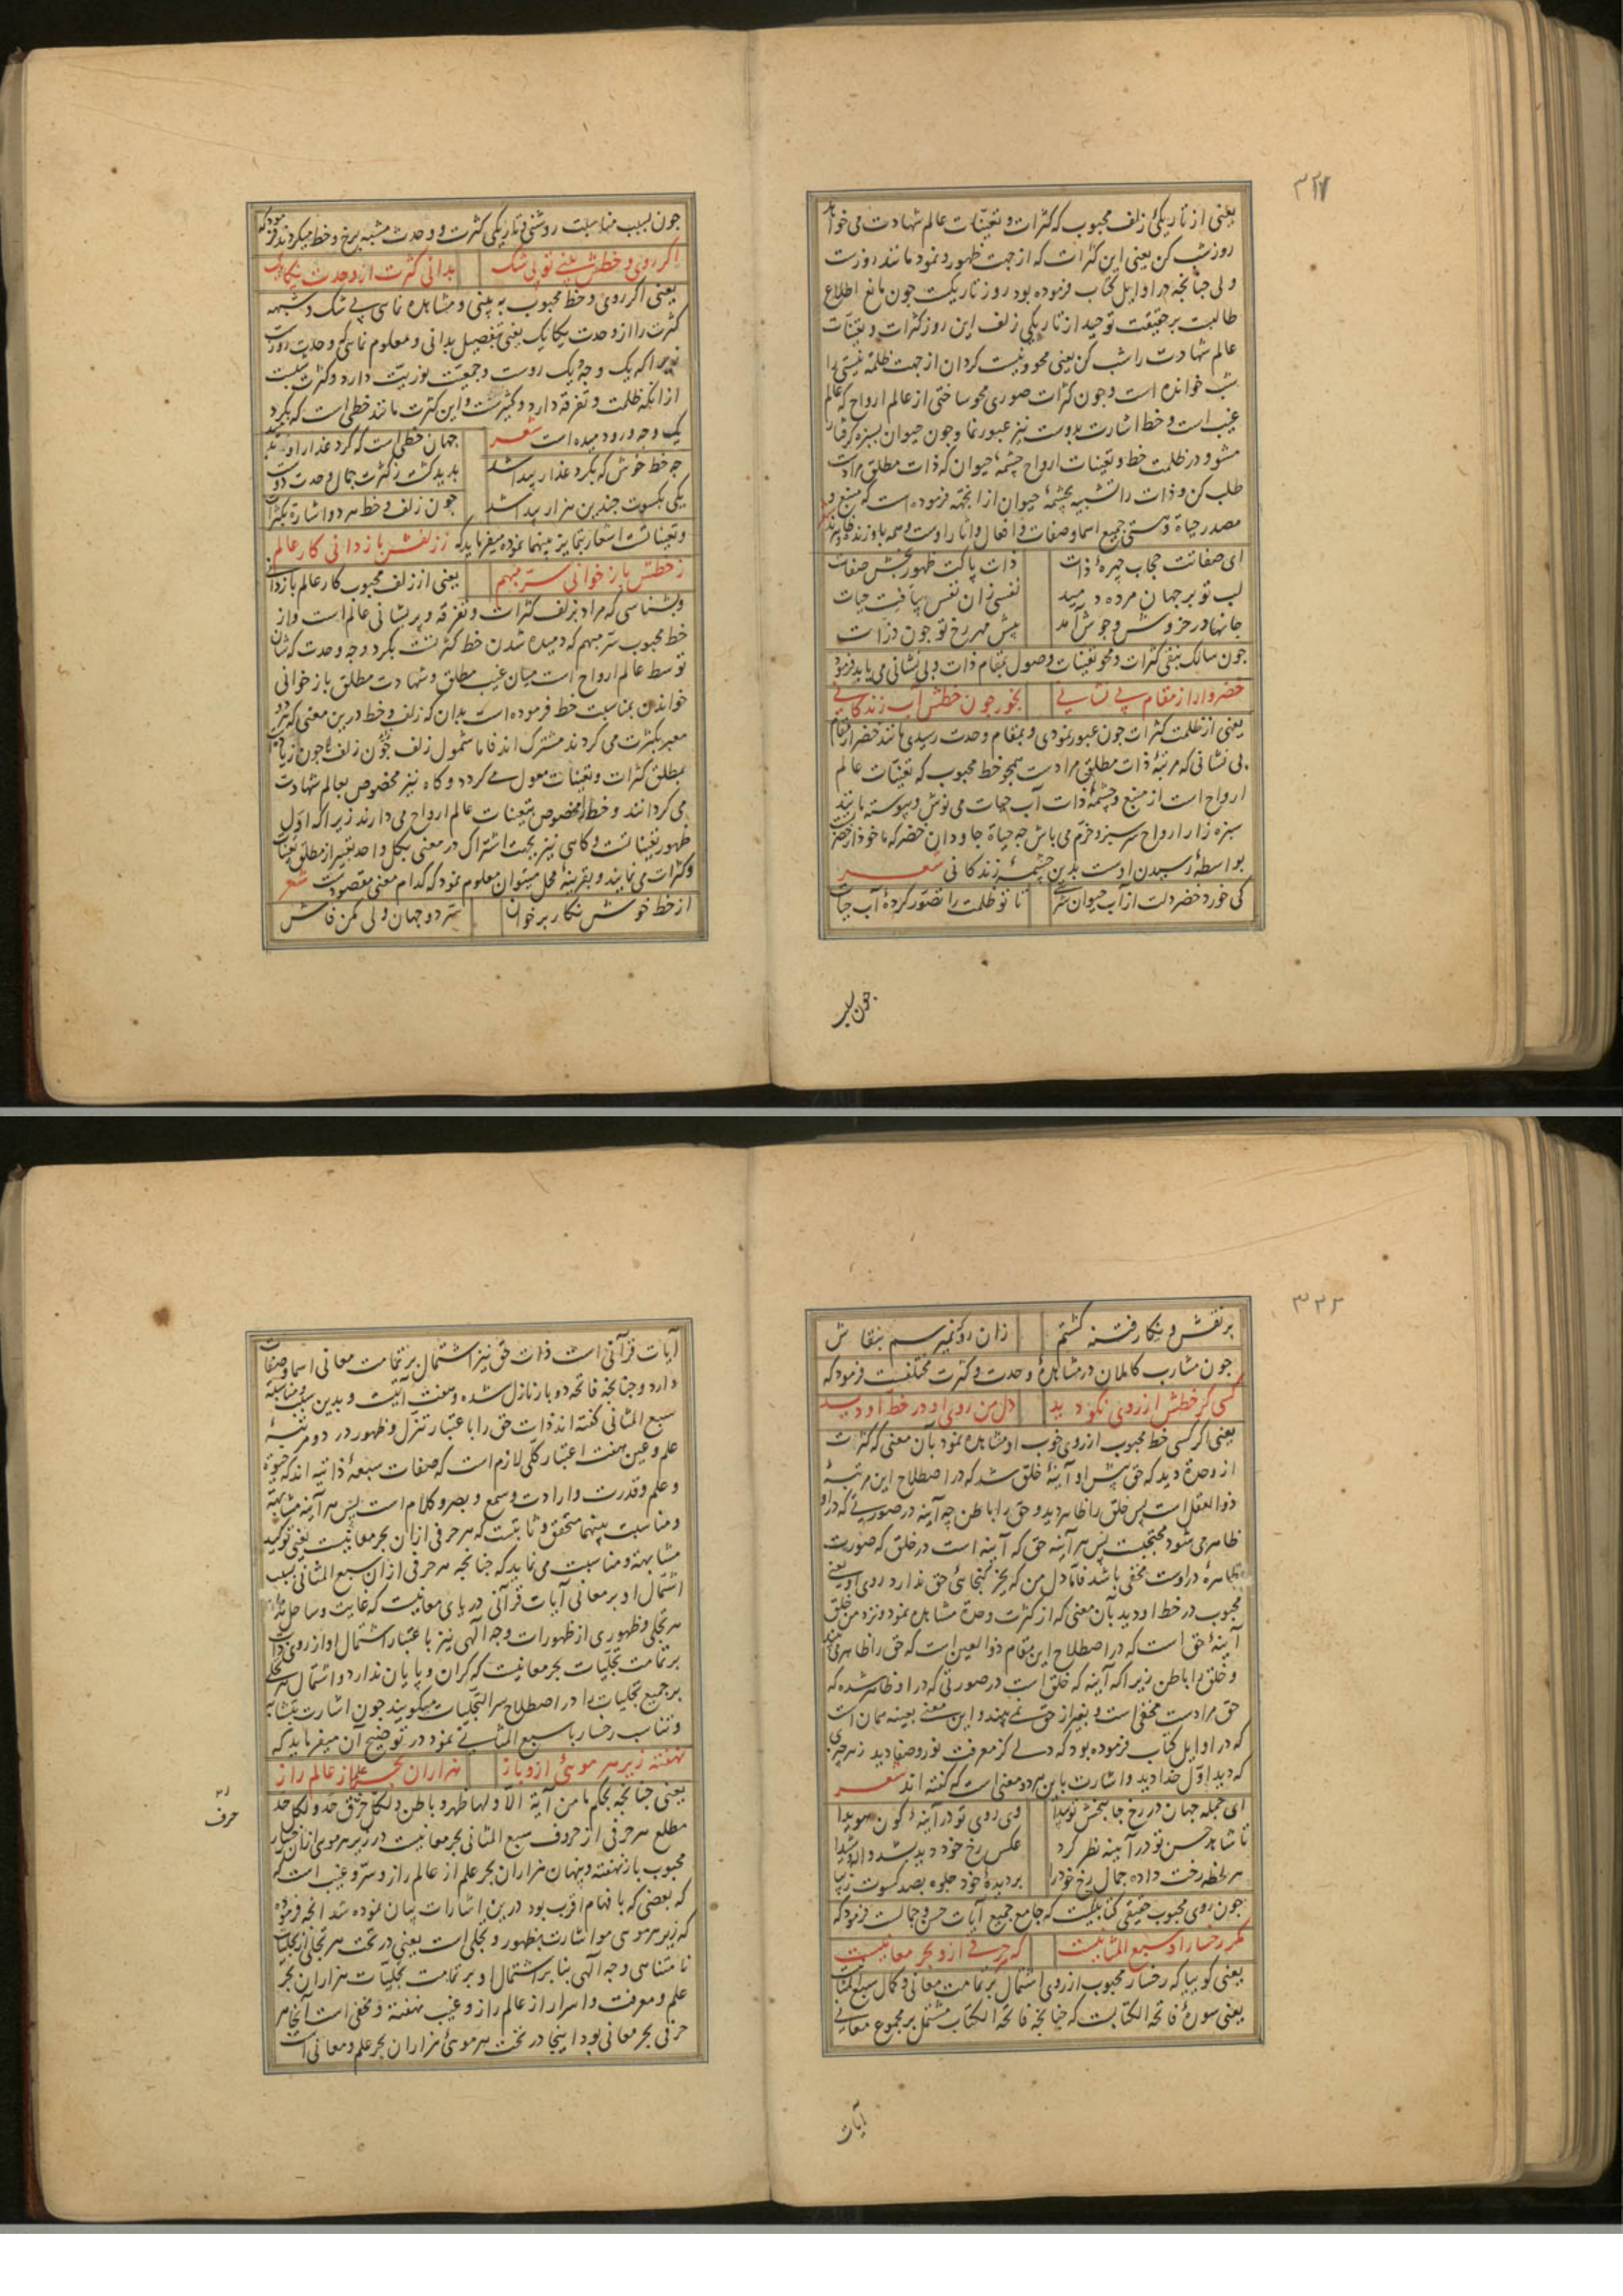 ۳۲۱
یعنی از تاریکی زلف محبوب که کثرات و تعینات عالم شهادت می خواند
روز شب کن یعنی این کثرات که از جهت ظهور و نمود مانند روزست
ولی چنانچه در اوایل کتاب فرموده بود روز تاریکست چون مانع اطلاع
طالبست بر حقیقت توحید از تاریکی زلف این روز کثرات و تعینات
عالم شهادت را شب کن یعنی محو و نیست کردان از جهت ظلمة نیستی را
شب خوانده است و چون کثرات صوری محو ساختی از عالم ارواح که عالم
غیب است و خط اشارت بدوست نیز عبور نما و چون حیوان بسبزه کرفتار
مشو و در ظلمت خط و تعینات ارواح چشمهٔ حیوان که ذات مطلق مرادست
طلب کن و ذات را تشبیه بچشمهٔ حیوان از انجهة فرموده است که منبع و
مصدر حیاة و هستی جمیع اسما و صفات و افعال و آثار اوست و همه باو زنده
ای صفاتت حجاب چهرهٔ ذات
ذات پاکت ظهور بخش صفات
لب تو بر جهان مرده دمید
نفسی زان نفس بیافت حیات
جانها در خروش و جوش آمد
پیش مهر رخ تو چون ذرات
چون سالک بنفی کثرات و محو تعینات وصول بمقام ذات و بی نشانی می یابد فرمود
خضروار از مقام بی نشانی
بخور چون خطش آب زندکانی
یعنی از ظلمت کثرات چون عبور نمودی و بمقام وحدت رسیدی مانند خضر از مقام
بی نشانی که مرتبهٔ ذات مطلق مرادست همچو خط محبوب که تعینات عالم
ارواح است از منبع و چشمهٔ ذات آب حیات می نوش و پیوسته مانند
سبزه زار ارواح سرسبز و خرم می باش چه حیاة جاودان خضر که ماخوذ از خضرتست
بواسطهٔ رسیدن اوست بدین چشمهٔ زندکانی شعر
کی خورد خضر دلت از آب حیوان
تا تو ظلمت را تصور کردهٔ آب حیات
چون بسبب
چون بسبب مناسبت روشنی و تاریکی کثرت و وحدت مشبه برخ و خط میکردند فرمود که
اکر روی و خطش بینی تو بی شک
بدانی کثرت از وحدت یکایک
یعنی اکر روی و خط محبوب به بینی و مشاهده نمایی بی شک و شبهه
کثرت را از وحدت یکایک یعنی بتفصیل بدانی و معلوم نمایی که وحدت روست
چرا که یک وجه یک روست و جمعیت نوریت دارد و کثرت
از آنکه ظلمت و تفرقه دارد و کثیرست و این کثرت مانند خطی است که بکرد
یک وجه و رو دمیده است شعر
جهان خطی است که کرد عذار او
چه خط خوش که بکرد عذار پیدا شد
بدید کشت ز کثرت جمال وحدت دوست
یکی بکسوت چندین هزار پیدا شد
چون زلف و خط هر دو اشارة بکثرات
و تعیناتست اشعار بتمایز بینهما نموده میفرماید که ز زلفش باز دانی کار عالم
ز خطش باز خوانی سر مبهم
یعنی از زلف محبوب کار عالم بازدانی
و بشناسی که مراد بزلف کثرات و تفرقه و پریشانی عالم است و از
خط محبوب سر مبهم که دمیده شدن خط کثرتست بکرد وجه وحدت که شان
توسط عالم ارواح است میان غیب مطلق و شهادت مطلق باز خوانی
خواندن بمناسبت خط فرموده است بدان که زلف و خط درین معنی که هر دو
معبر بکثرت می کردند مشترک اند فاما شمول زلف چون زیادتست
بمطلق کثرات و تعینات معول می کردد و کاه نیز مخصوص بعالم شهادت
می کردانند و خط را مخصوص بتعینات عالم ارواح می دارند زیرا که اول
ظهور تعیناتست و کاهی نیز بجهت اشتراک در معنی بکل واحد تعبیر از مطلق تعینات
و کثرات می نمایند و بقرینهٔ محل میتوان معلوم نمود که کدام معنی مقصودست شعر
از خط خوش نکار برخوان
سر دو جهان ولی مکن فاش
۳۲۲
بر نقش و نکار فتنه کشتم
زان رو نمیرسم بنقاش
چون مشارب کاملان در مشاهدهٔ وحدت و کثرت مختلفست فرمود که
کسی کر خطش از روی نکو دید
دل من روی او در خط او دید
یعنی اکر کسی خط محبوب از روی خوب او مشاهده نمود بآن معنی که کثرت
از وحدة دید که حق پیش او آینهٔ خلق شد که در اصطلاح این مرتبهٔ
ذو العقل است پس خلق را ظاهر دید و حق را باطن چه آینه در صورتی که در او
ظاهر می شود محتجبست پس هر آینه حق که آینه است در خلق که صورت
ظاهره در اوست مخفی باشد فاما دل من که بجز کنجایی حق ندارد روی او یعنی
محبوب در خط او دید بآن معنی که از کثرت وحدة مشاهده نمود و نزد من خلق
آینهٔ حق است که در اصطلاح این مقام ذو العین است که حق را ظاهر می بیند
و خلق را باطن زیرا که آینه که خلق است در صورتی که در او ظاهر شده که
حق مرادست مخفی است و بغیر از حق نمی بیند و این معنی بعینه همان است
که در اوایل کتاب فرموده بود که دلی کز معرفت نور و صفا دید ز هر چیزی
که دید اول خدا دید و اشارت باین هر دو معنی است که کفته اند شعر
ای جمله جهان در رخ جانبخش تو پیدا
وی روی تو در آینهٔ کون هویدا
تا شاهد حسن تو در آینه نظر کرد
عکس رخ خود دید بشد واله و شیدا
هر لحظه رخت داده جمال رخ خود را
بر دیدهٔ خود جلوه بصد کسوت زیبا
چون روی محبوب حقیقی کتابیست که جامع جمیع آیات حسن و جمالست فرمود که
مکر رخسار او سبع المثانیست
که هر حرفی ازو بحر معانیست
یعنی کوییا که رخسار محبوب از روی اشتمال بر تمامت معانی و کمال سبع المثانی
یعنی سورهٔ فاتحة الکتابست که چنانچه فاتحة الکتاب مشتمل بر مجموع معانی
آیات
آیات قرآنی است ذات حق نیز اشتمال بر تمامت معانی اسما و صفات
دارد و چنانچه فاتحه دو بار نازل شده و هفت آیتست و بدین سبب و مناسبت
سبع المثانی کفته اند ذات حق را باعتبار تنزل و ظهور در دو مرتبهٔ
علم و عین هفت اعتبار کلی لازم است که صفات سبعهٔ ذاتیه اند که حیوة
و علم و قدرت و ارادت و سمع و بصر و کلام است پس هر آینه مشابهة
و مناسبت بینهما متحقق و ثابتست که هر حرفی ازان بحر معانیست یعنی توکید
مشابهة و مناسبت می نماید که چنانچه هر حرفی از ان سبع المثانی بسبب
اشتمال او بر معانی آیات قرآنی دریای معانیست که غایت و ساحل
هر تجلی و ظهوری از ظهورات وجه الهی نیز باعتبار اشتمال او از روی ذات
بر تمامت تجلیات بحر معانیست که کران و پایان ندارد و اشتمال هر تجلی
بر جمیع تجلیات را در اصطلاح سر التجلیات میکویند چون اشارت بتشابه
و تناسب رخسار با سبع المثانی نمود در توضیح آن میفرماید که
نهفته زیر هر مویی ازو باز
هزاران بحر علم از عالم راز
یعنی چنانچه بحکم ما من آیة الا ولها ظهر و باطن و لکل حرف حد و لکل حد
مطلع هر حرفی از حروف سبع المثانی بحر معانیست در زیر هر مویی ازان رخسار
محبوب باز نهفته و پنهان هزاران بحر علم از عالم راز و سر و غیب است
که بعضی که بافهام اقرب بود درین اشارات بیان نموده شد آنچه فرموده
که زیر هر مویی مو اشارت بظهور و تجلی است یعنی در تحت هر تجلی از تجلیات
نامتناهی وجه الهی بنا بر اشتمال او بر تمامت تجلیات هزاران بحر
علم و معرفت و اسرار از عالم راز و غیب نهفته و مخفی است آنجا هر
حرفی بحر معانی بود اینجا در تحت هر مویی هزاران بحر علم و معانی است
حرف